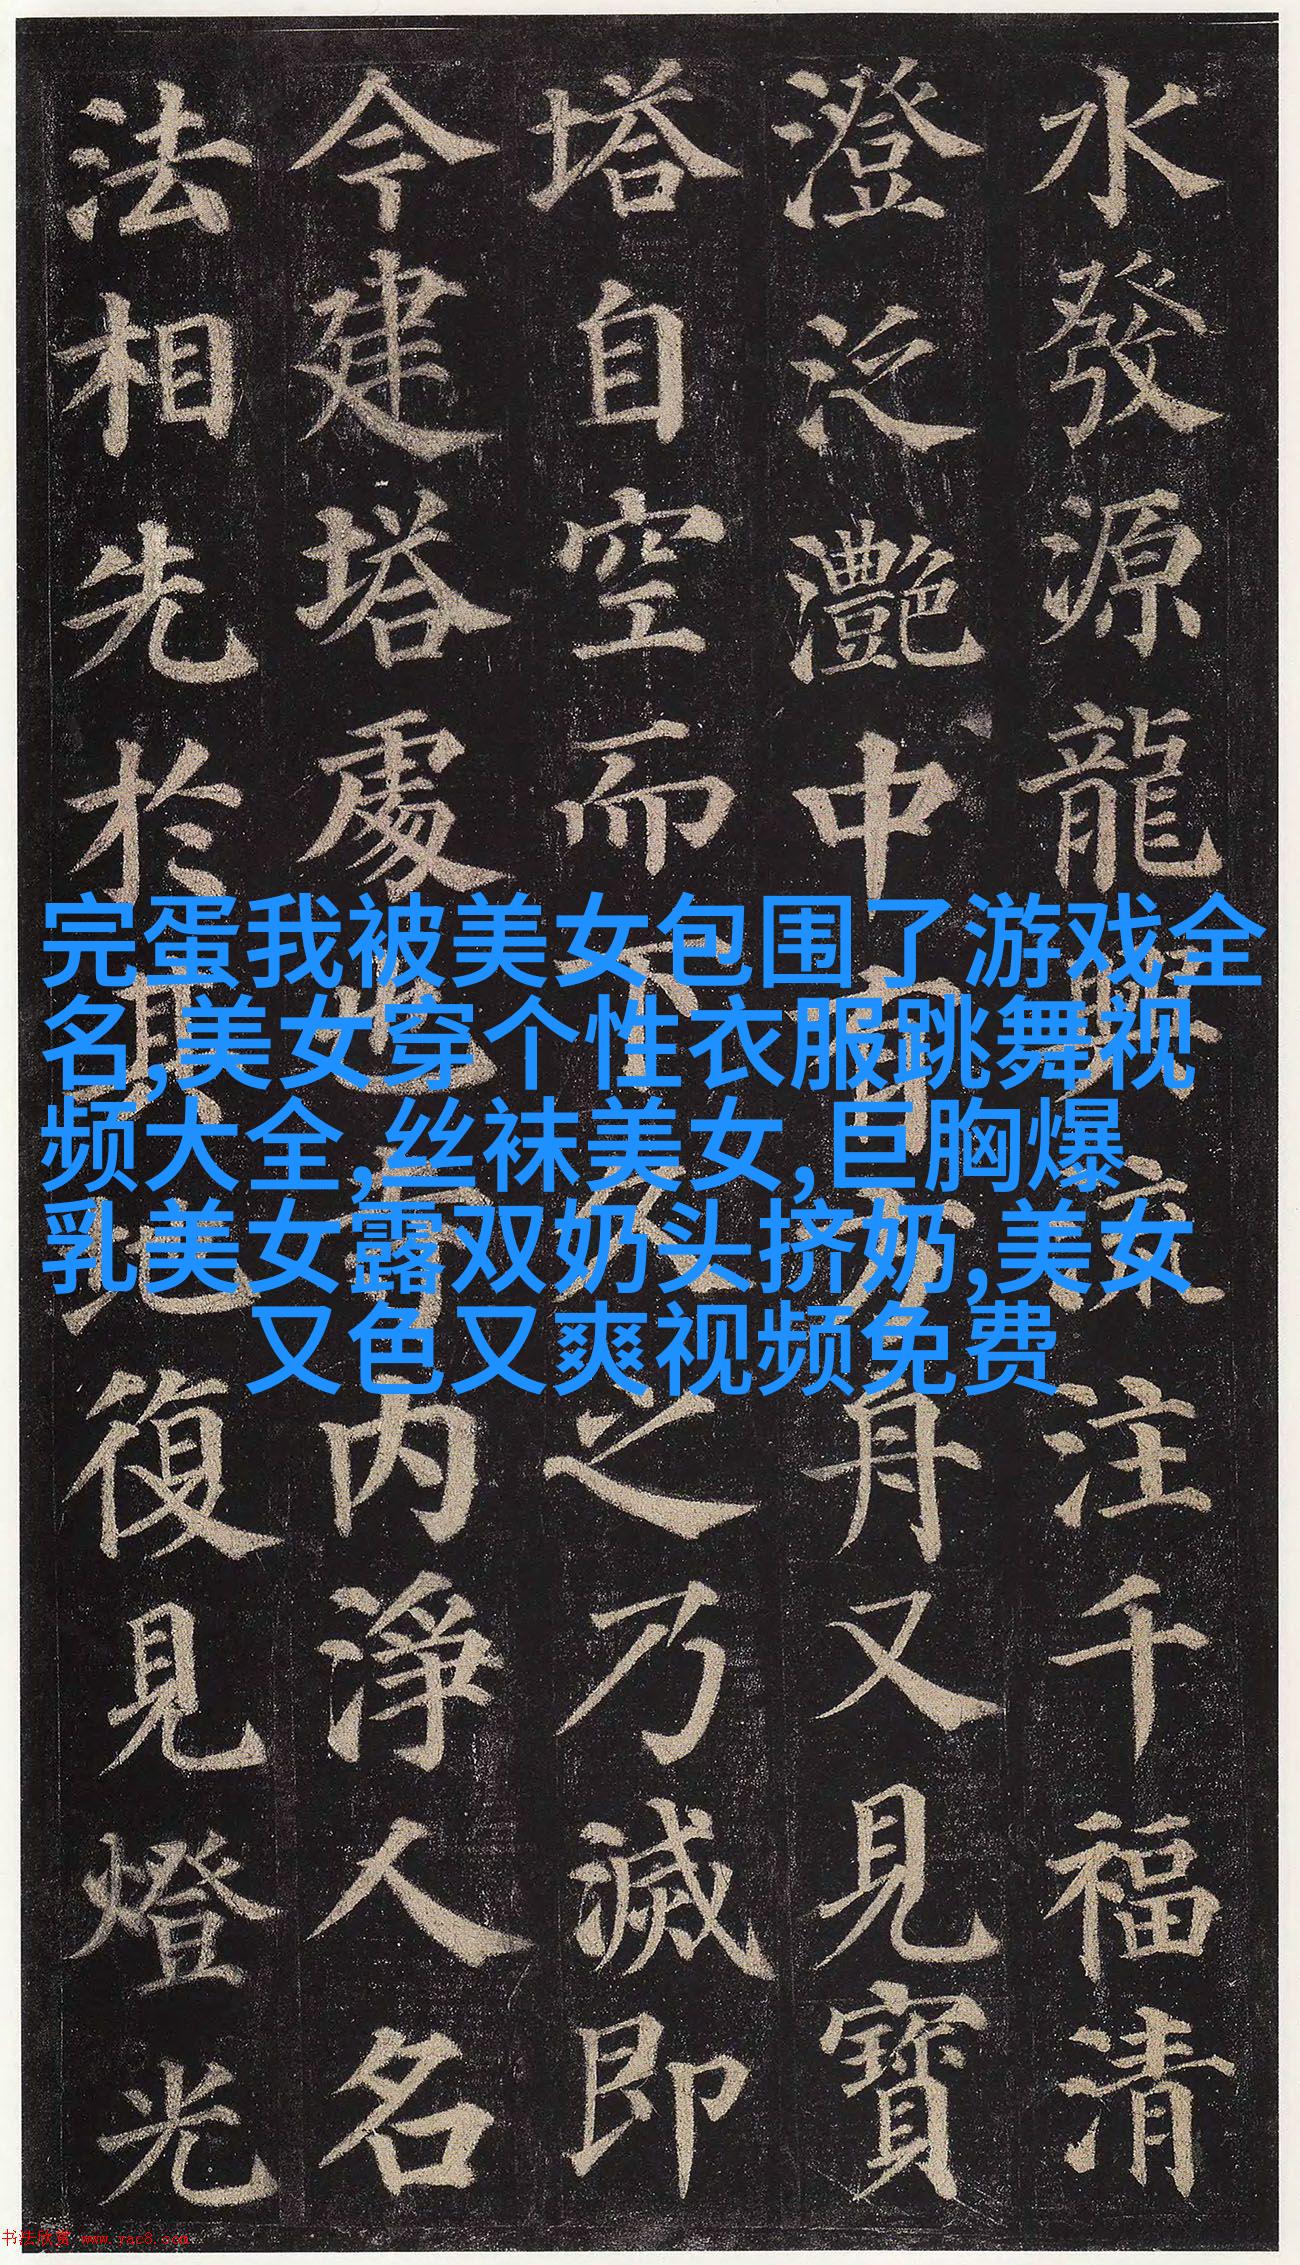 水發源龍興流注千福清
澄泛灧中有方舟又見寶
塔自空而下久之乃滅即
今建塔處也寺内淨人名
法相先於其地復見燈光
完蛋我被美女包围了游戏全
名,美女穿个性衣服跳舞视
频大全,丝袜美女,巨胸爆
乳美女露双奶头挤奶,美女
又色又爽视频免费
书法欣赏 www.yac8.com